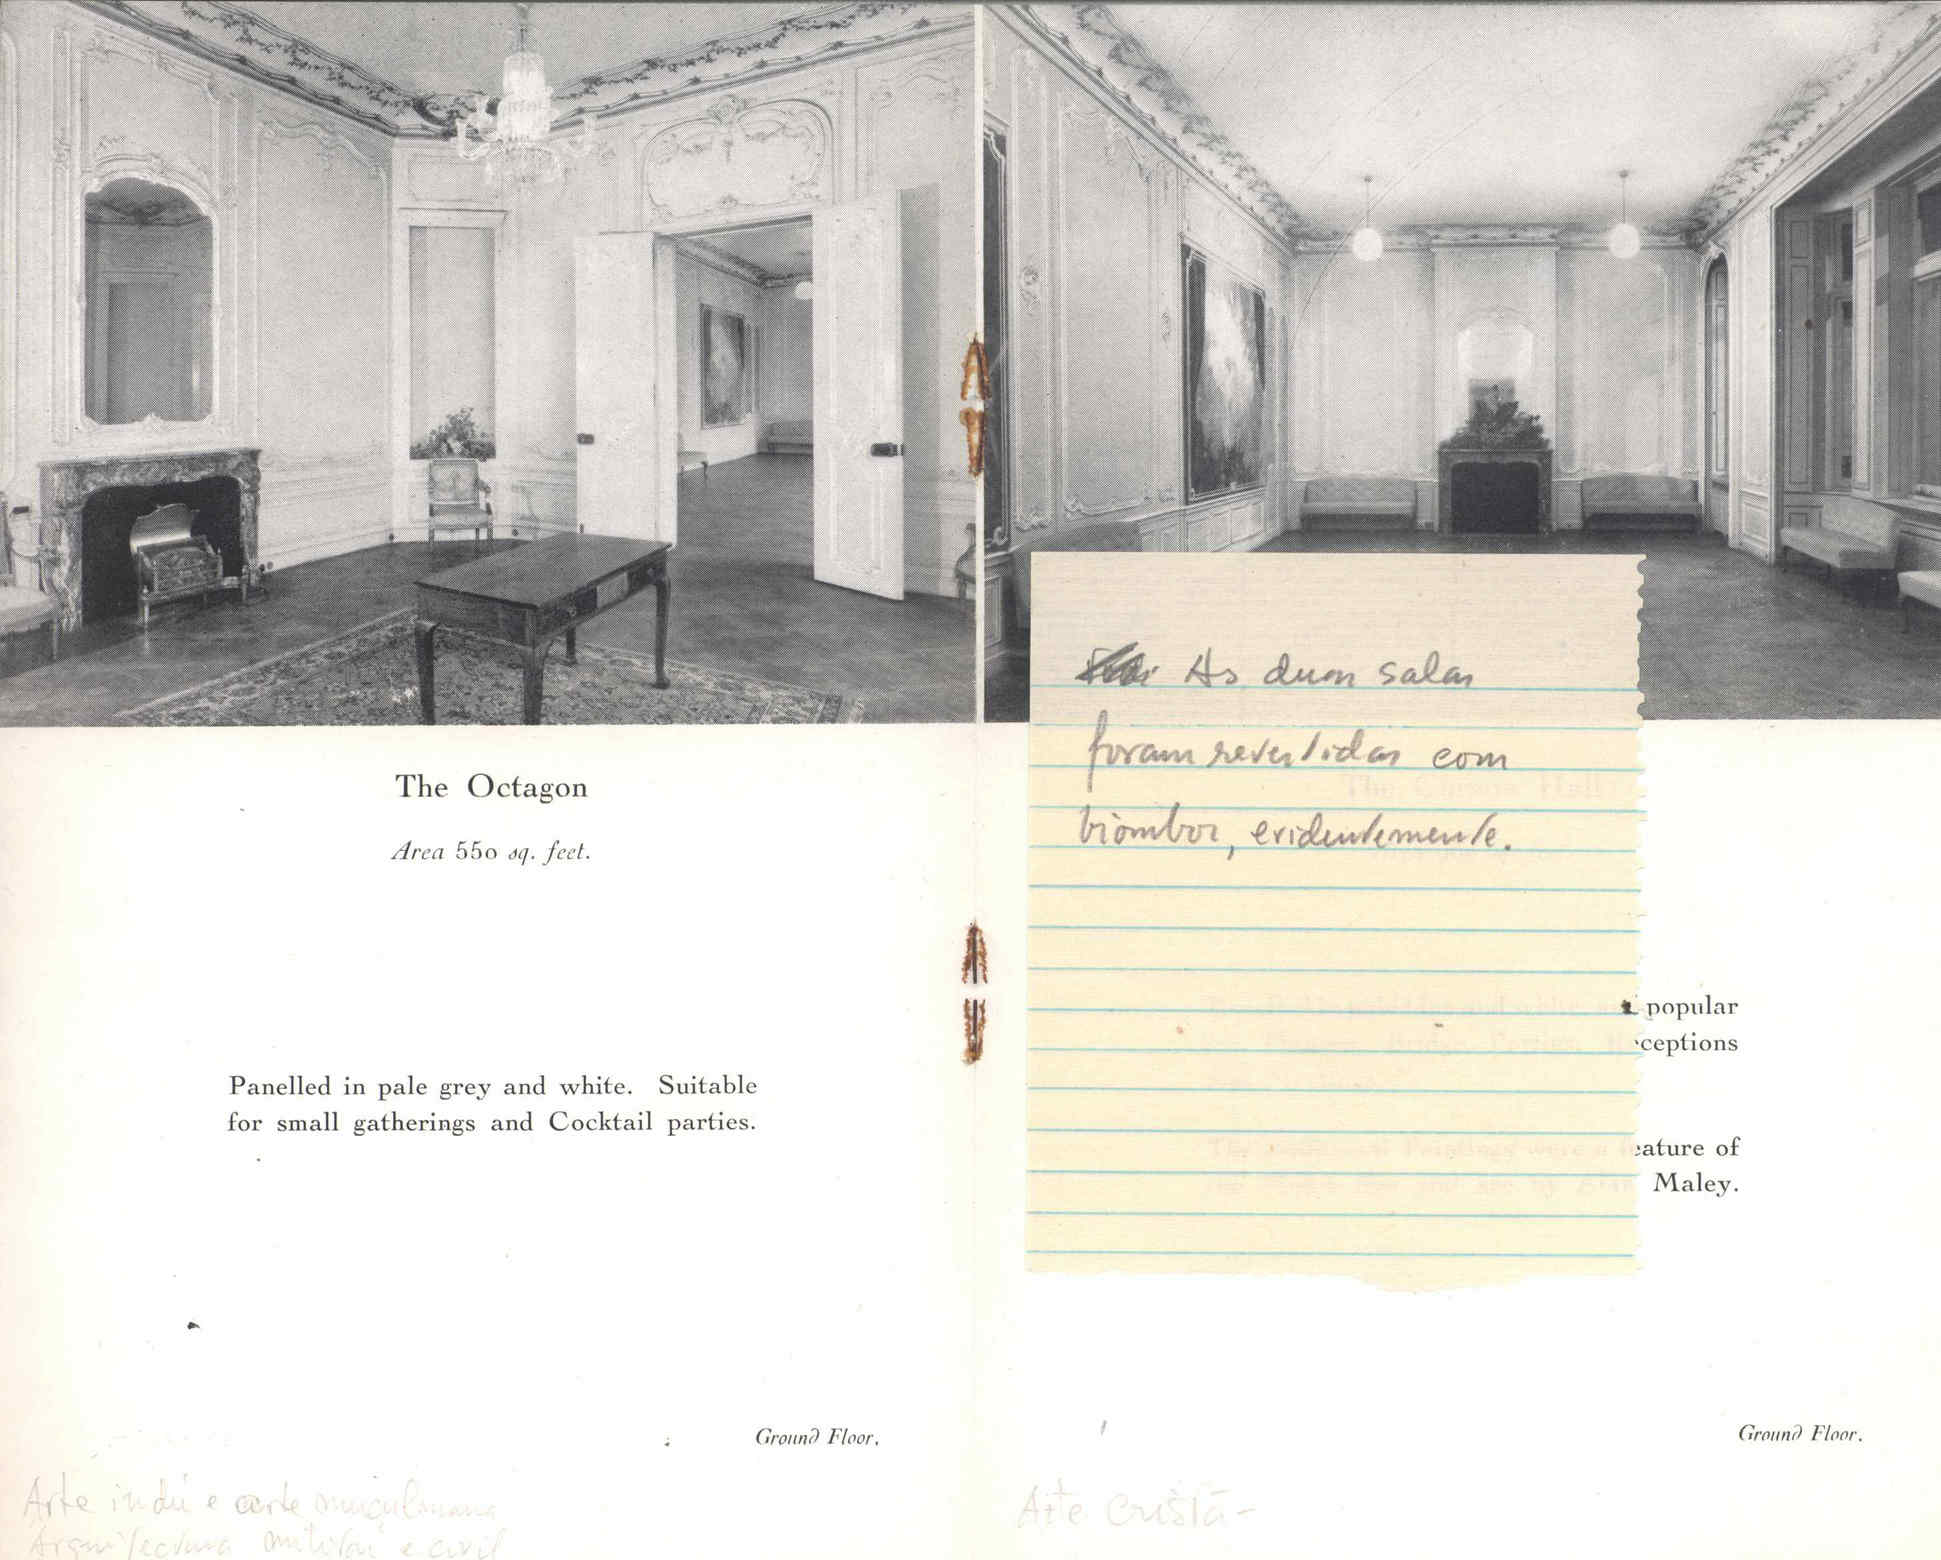 The Octagon
Area 550 sq. feet.
Panelled in pale grey and white. Suitable
for small gatherings and Cocktail parties.
Ground Floor.
Arte indú e arte muçulmana
Arquitectura militar e civil
As duas salas
foram revestidas com
biombos, evidentemente.
popular
eceptions
eature of
Maley.
Ground Floor.
Arte Cristã -